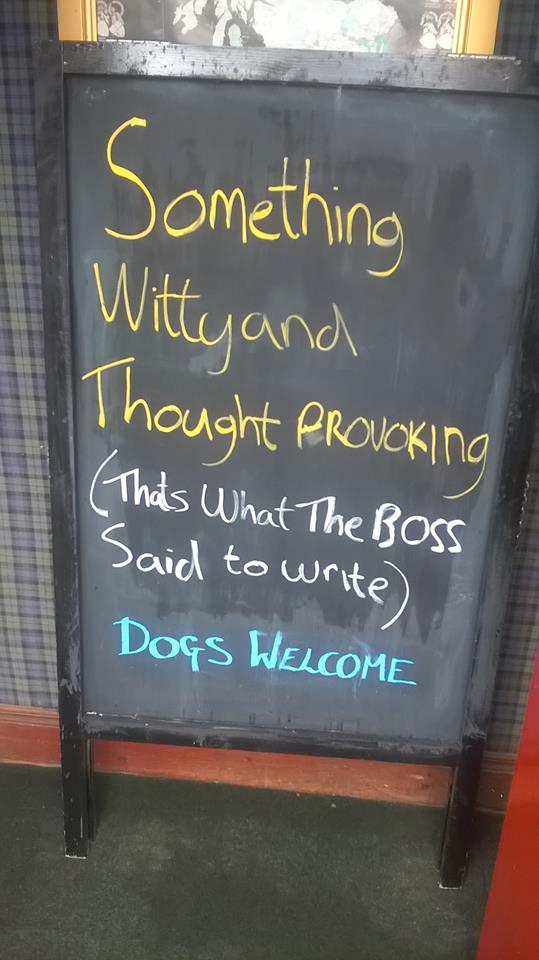 Something
Witty and
Thought PROVOKING
(Thats What The BOSS
Said to write)
DOGS WELCOME